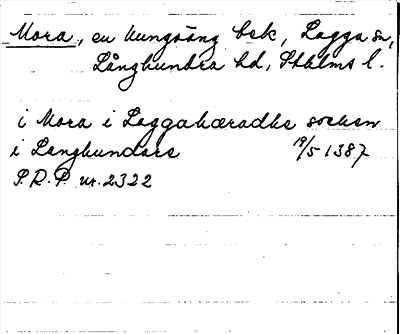 Mora, en kungsäng bek, Lagga sn,
Långhundra hd, Sthlms l.
i Mora i Laggahæradhs socken
i Langhundare 19/5 1387
S.R.P. nr. 2322